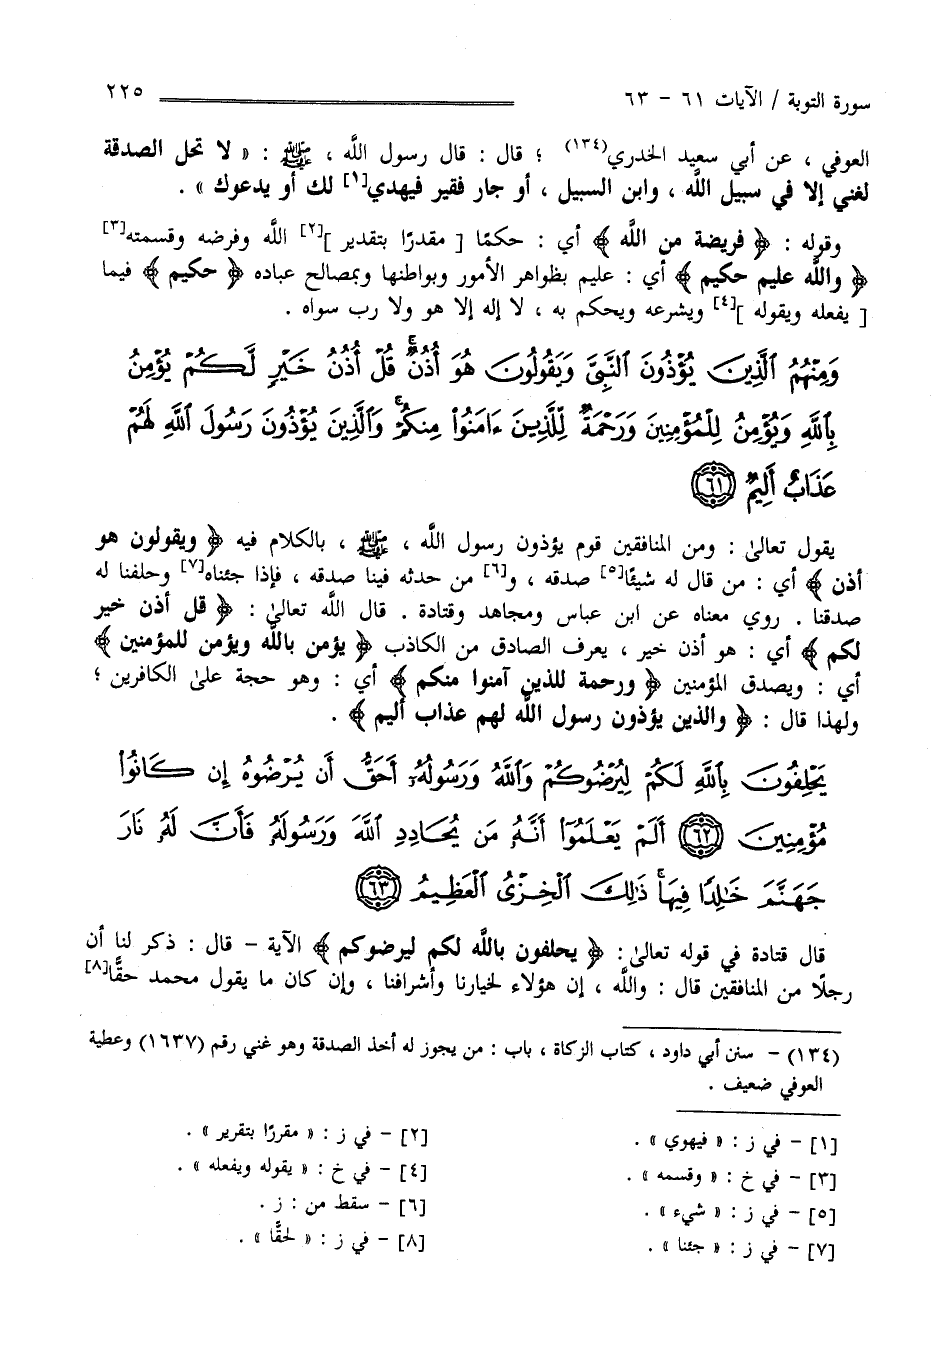 سورة التوبة / الآيات ٦١ - ٦٣ ٢٢٥
العوفي ، عن أبي سعيد الخدري(١٣٤) ؛ قال : قال رسول اللَّه ، ﷺ : « لا تحل الصدقة
لغني إلا في سبيل اللَّه ، وابن السبيل ، أو جار فقير فيهدي[١] لك أو يدعوك » .
وقوله : ﴿ فريضة من اللَّه ﴾ أي : حكمًا [ مقدرًا بتقدير ][٢] اللَّه وفرضه وقسمته[٣]
﴿ واللَّه عليم حكيم ﴾ أي : عليم بظواهر الأمور وبواطنها وبمصالح عباده ﴿ حكيم ﴾ فيما
[ يفعله ويقوله ][٤] ويشرعه ويحكم به ، لا إله إلا هو ولا رب سواه .
وَمِنْهُمُ ٱلَّذِينَ يُؤْذُونَ ٱلنَّبِىَّ وَيَقُولُونَ هُوَ أُذُنٌۚ قُلْ أُذُنُ خَيْرٍ لَّكُمْ يُؤْمِنُ
بِٱللَّهِ وَيُؤْمِنُ لِلْمُؤْمِنِينَ وَرَحْمَةٌ لِّلَّذِينَ ءَامَنُوا۟ مِنكُمْۚ وَٱلَّذِينَ يُؤْذُونَ رَسُولَ ٱللَّهِ لَهُمْ
عَذَابٌ أَلِيمٌ ٦١
يقول تعالىٰ : ومن المنافقين قوم يؤذون رسول اللَّه ، ﷺ ، بالكلام فيه ﴿ ويقولون هو
أذن ﴾ أي : من قال له شيئًا[٥] صدقه ، و[٦] من حدثه فينا صدقه ، فإذا جئناه[٧] وحلفنا له
صدقنا . روي معناه عن ابن عباس ومجاهد وقتادة . قال اللَّه تعالىٰ : ﴿ قل أذن خير
لكم ﴾ أي : هو أذن خير ، يعرف الصادق من الكاذب ﴿ يؤمن باللَّه ويؤمن للمؤمنين ﴾
أي : ويصدق المؤمنين ﴿ ورحمة للذين آمنوا منكم ﴾ أي : وهو حجة علىٰ الكافرين ؛
ولهذا قال : ﴿ والذين يؤذون رسول اللَّه لهم عذاب أليم ﴾ .
يَحْلِفُونَ بِٱللَّهِ لَكُمْ لِيُرْضُوكُمْ وَٱللَّهُ وَرَسُولُهُۥٓ أَحَقُّ أَن يُرْضُوهُ إِن كَانُوا۟
مُؤْمِنِينَ ٦٢ أَلَمْ يَعْلَمُوٓا۟ أَنَّهُۥ مَن يُحَادِدِ ٱللَّهَ وَرَسُولَهُۥ فَأَنَّ لَهُۥ نَارَ
جَهَنَّمَ خَٰلِدًا فِيهَاۚ ذَٰلِكَ ٱلْخِزْىُ ٱلْعَظِيمُ ٦٣
قال قتادة في قوله تعالىٰ : ﴿ يحلفون باللَّه لكم ليرضوكم ﴾ الآية - قال : ذكر لنا أن
رجلًا من المنافقين قال : واللَّه ، إن هؤلاء لخيارنا وأشرافنا ، وإن كان ما يقول محمد حقًّا[٨]
(١٣٤) - سنن أبي داود ، كتاب الزكاة ، باب : من يجوز له أخذ الصدقة وهو غني رقم (١٦٣٧) وعطية
العوفي ضعيف .
[١] - في ز : « فيهوي » . [٢] - في ز : « مقررًا بتقرير » .
[٣] - في خ : « وقسمه » . [٤] - في خ : « يقوله ويفعله » .
[٥] - في ز : « شيء » . [٦] - سقط من : ز .
[٧] - في ز : « جئنا » . [٨] - في ز : « لحقًّا » .